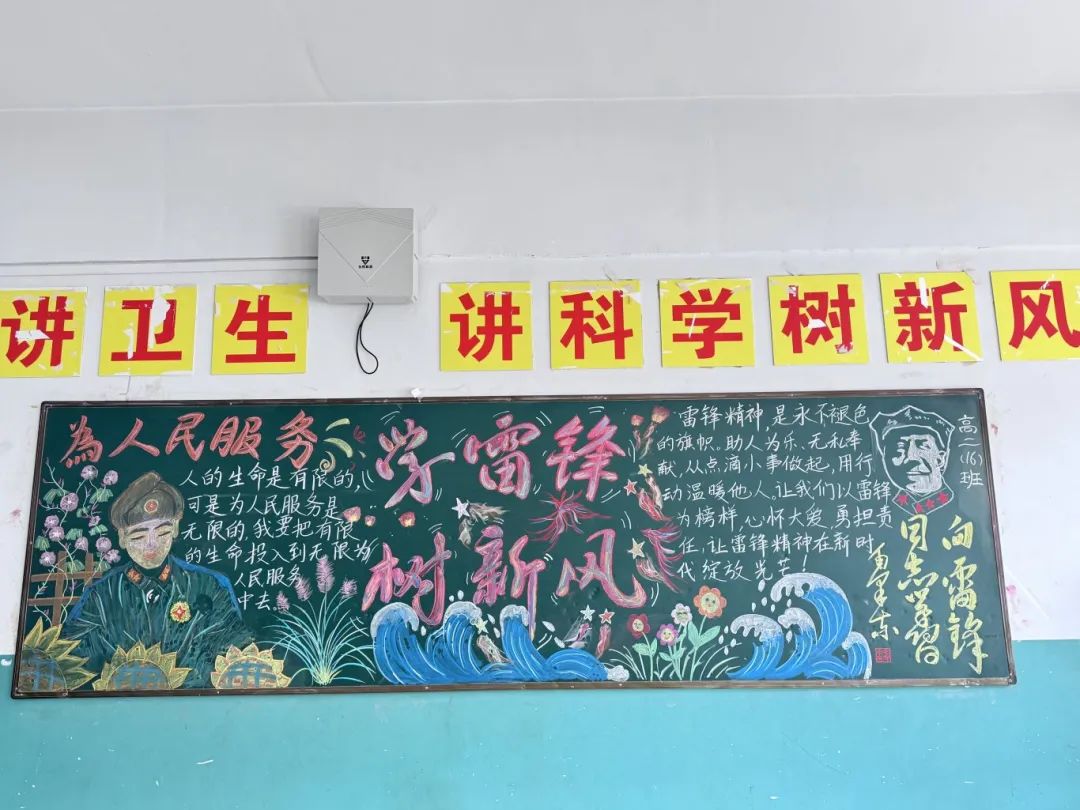 讲卫生 讲科学树新风
為人民服务
人的生命是有限的,
可是为人民服务是
无限的,我要把有限
的生命投入到无限为
人民服务
中去。
学雷锋
树新风
雷锋精神,是永不褪色
的旗帜。助人为乐、无私奉
献,从点滴小事做起,用行
动温暖他人,让我们以雷锋
为榜样,心怀大爱,勇担责
任,让雷锋精神在新时
代绽放光芒!
高二(16)班
向雷锋
同志学习
毛泽东